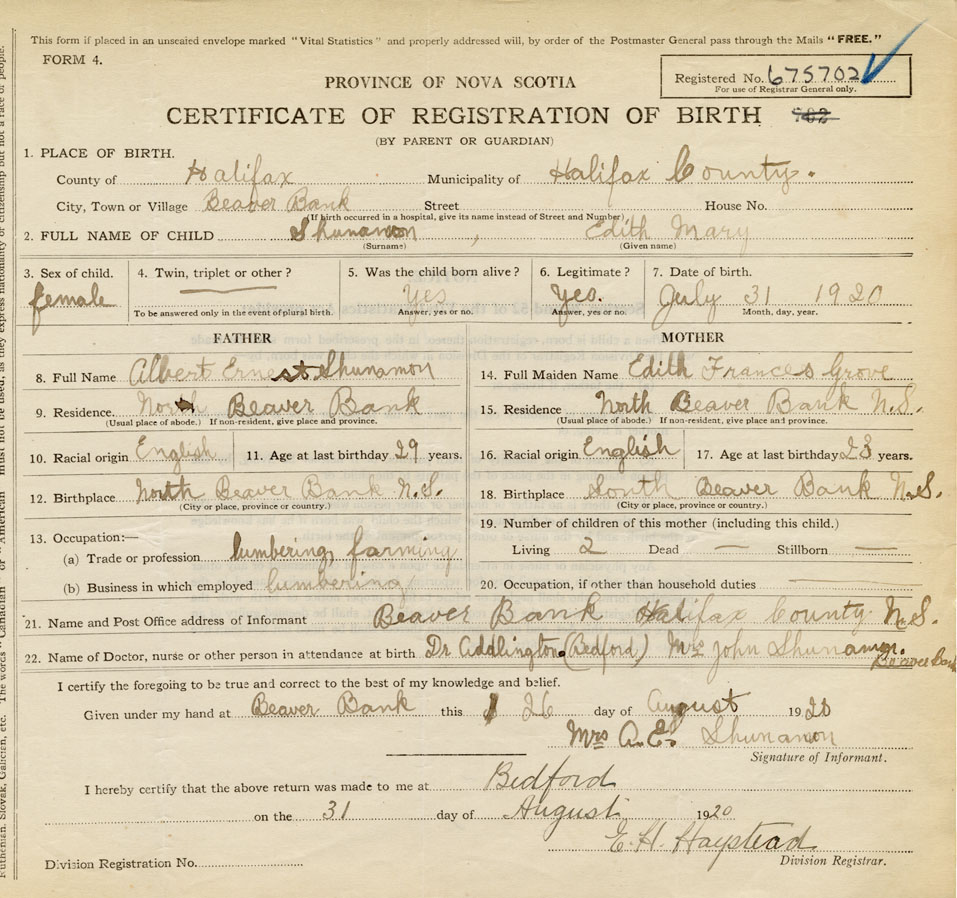 This form if placed in an unsealed envelope marked "Vital Statistics" and properly addressed will, by order of the Postmaster General pass through the Mails "FREE."
FORM 4.
Registered No. 675702
For use of Registrar General only.
PROVINCE OF NOVA SCOTIA
CERTIFICATE OF REGISTRATION OF BIRTH
(BY PARENT OR GUARDIAN)
1. PLACE OF BIRTH.
County of Halifax Municipality of Halifax County.
City, Town or Village Beaver Bank Street House No.
(If birth occurred in a hospital, give its name instead of Street and Number)
2. FULL NAME OF CHILD Shunamon, Edith Mary
(Surname) (Given name)
3. Sex of child. 4. Twin, triplet or other? 5. Was the child born alive? 6. Legitimate? 7. Date of birth.
female Yes Yes. July 31 1920
To be answered only in the event of plural birth. Answer, yes or no. Answer, yes or no. Month, day, year.
FATHER MOTHER
8. Full Name Albert Ernest Shunamon 14. Full Maiden Name Edith Frances Grove
9. Residence. North Beaver Bank 15. Residence North Beaver Bank N.S.
(Usual place of abode.) If non-resident, give place and province. (Usual place of abode.) If non-resident, give place and province.
10. Racial origin English 11. Age at last birthday 29 years. 16. Racial origin English 17. Age at last birthday 23 years.
12. Birthplace North Beaver Bank N.S. 18. Birthplace South Beaver Bank N.S.
(City or place, province or country.) (City or place, province or country.)
13. Occupation:— 19. Number of children of this mother (including this child.)
(a) Trade or profession lumbering, farming Living 2 Dead — Stillborn —
(b) Business in which employed lumbering 20. Occupation, if other than household duties
21. Name and Post Office address of Informant Beaver Bank Halifax County N.S.
22. Name of Doctor, nurse or other person in attendance at birth Dr Addlington (Bedford) Mrs John Shunamon.
Beaver Bank
I certify the foregoing to be true and correct to the best of my knowledge and belief.
Given under my hand at Beaver Bank this 26 day of August 1920
Mrs A.E. Shunamon
Signature of Informant.
I hereby certify that the above return was made to me at Bedford
on the 31 day of August 1920
E. H. Haystead
Division Registrar.
Division Registration No.
Ruthenian, Slovak, Galician, etc. The words "Canadian" or "American" must not be used, as they express nationality or citizenship but not a race of people.